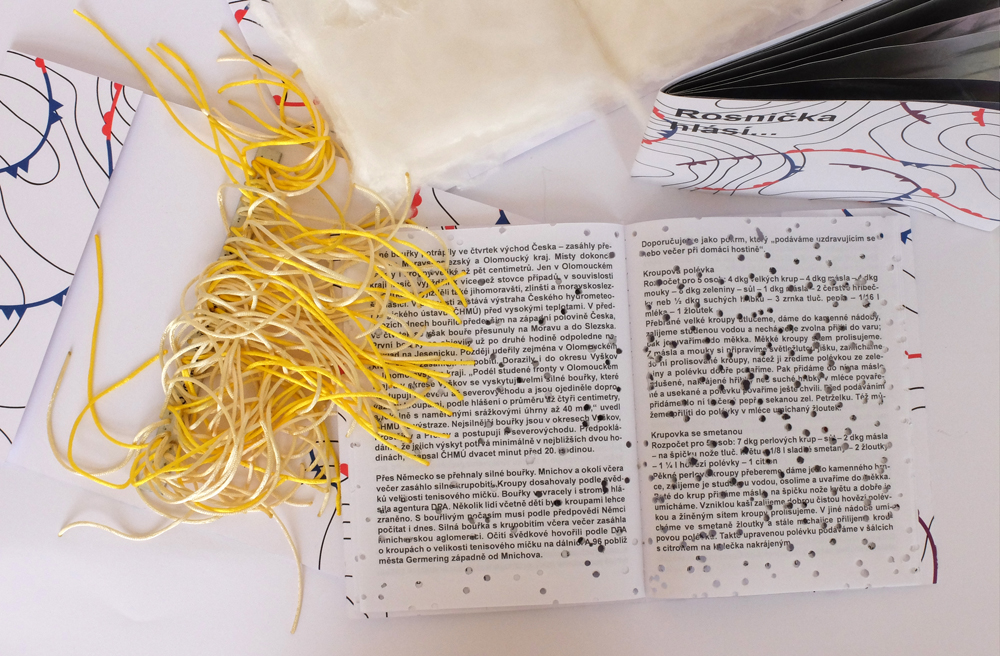 Rosnička
hlásí...
né bouřky potrápily ve čtvrtek východ Česka – zasáhly pře-
Moravskoslezský a Olomoucký kraj. Místy dokonc
až pět centimetrů. Jen v Olomouckém
kraji více než stovce případů, v souvislosti
také jihomoravští, zlínští a moravskoslez-
zůstává výstraha Českého hydrometeo-
ústavu (ČHMÚ) před vysokými teplotami. V před-
bouřky především na západní polovině Česka,
však bouře přesunuly na Moravu a do Slezska.
První už po druhé hodině odpoledne na
na Jesenicku. Později udeřily zejména v Olomouckém
Dorazily i do okresu Vyškov
kraji. „Podél studené fronty v Olomouckém
okrese Vyškov se vyskytují velmi silné bouřky, které
severovýchodu a jsou ojediněle dopro-
kroupami, podle hlášení o průměru až čtyři centimetry,
s namíchanými srážkovými úhrny až 40 mm,“ uvedl
ČHMÚ výstraze. Nejsilnější bouřky jsou v okresech Vyškov,
a Přerov a postupují k severovýchodu. Předpoklá-
dáme, že jejich výskyt potrvá minimálně v nejbližších dvou ho-
dinách,“ napsal ČHMÚ dvacet minut před 20. hodinou.
Přes Německo se přehnaly silné bouřky. Mnichov a okolí včera
večer zasáhlo silné krupobití. Kroupy dosahovaly podle svěd-
ků velikosti tenisového míčku. Bouřky vyvracely i stromy, hlá-
sila agentura DPA. Několik lidí včetně dětí bylo kroupami lehce
zraněno. S bouřlivým počasím musí podle předpovědi Němci
počítat i dnes. Silná bouřka s krupobitím včera večer zasáhla
mnichovskou aglomeraci. Očití svědkové hovořili podle DPA
o kroupách o velikosti tenisového míčku na dálnici A 96 poblíž
města Germering západně od Mnichova.
Doporučujeme jako pokrm, který „podáváme uzdravujícím se
nebo večer při domácí hostině“.
Kroupová polévka
Rozpočet pro 5 osob: 4 dkg velkých krup – 4 dkg másla – 4 dkg
mouky – 6 dkg zeleniny – sůl – 1 dkg másla – 2 čerstvé hřibeč-
ky neb ½ dkg suchých hříbků – 3 zrnka tluč. pepře – 1/16 l
mléka – 1 žloutek
Přebrané velké kroupy utlučeme, dáme do kamenné nádoby,
zalijeme studenou vodou a necháme je zvolna přijíti do varu;
pak je uvaříme do měkka. Měkké kroupy sítem prolisujeme.
Z másla a mouky si připravíme světležlutou jíšku, zamícháme
do ní prolisované kroupy, načež ji zředíme polévkou ze zele-
niny a polévku dobře povaříme. Pak přidáme do ní na másle
zdušené, nakrájené hříbky neb suché hříbky v mléce pováře-
né a usekané a polévku povaříme ještě chvíli. Před podáváním
přidáme do ní tlučený pepř a sekanou zel. Petrželku. Též mů-
žeme přiliti do polévky v mléce umíchaný žloutek.
Krupovka se smetanou
Rozpočet pro 5 osob: 7 dkg perlových krup – sůl – 2 dkg másla
– na špičku nože tluč. květu – 1/8 l sladké smetany – 2 žloutky
– 1 ¼ l hovězí polévky – 1 citron
Pěkné perlové kroupy přebereme, dáme je do kamenného hrn-
ce, zalijeme je studenou vodou, osolíme a uvaříme do měkka.
Poté do krup přidáme máslo na špičku nože květu a dobře je
umícháme. Vzniklou kaši zalijeme dobrou čistou hovězí polév-
kou a žíněným sítem kroupy prolisujeme. V jiné nádobě umí-
cháme ve smetaně žloutky a stále míchajíce přilijeme krou-
povou polévku. Takto upravenou polévku podáváme v šálcích
s citronem na kolečka nakrájeným.